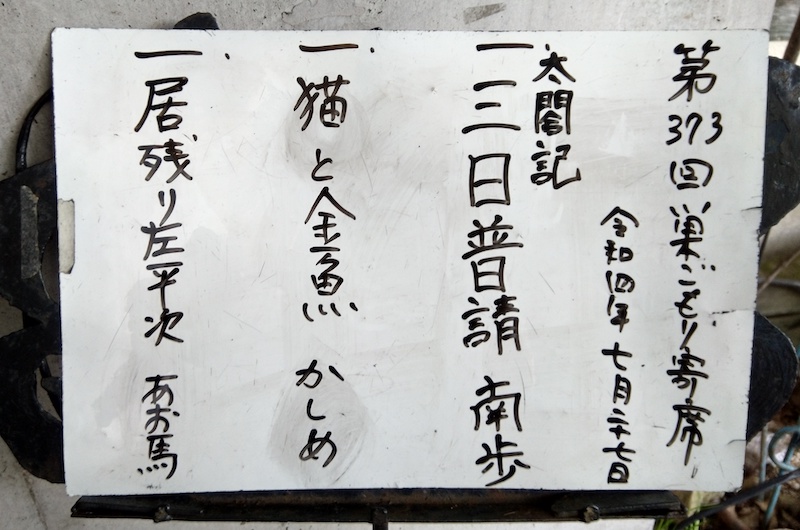 第373回巣ごもり寄席
令和四年七月二十七日
太閤記
一三日普請 南歩
一猫と金魚 かしめ
一居残り左平次 あお馬